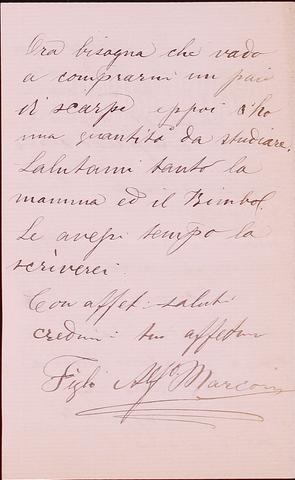 Ora bisogna che vado
a comprarmi un paio
di scarpe eppoi c'ho
una quantità da studiare.
Salutami tanto la
mamma ed il Bimbo.
Se avessi tempo la
scriverei
Con affet. saluti
credimi tuo
Figlio Alf. Marconi